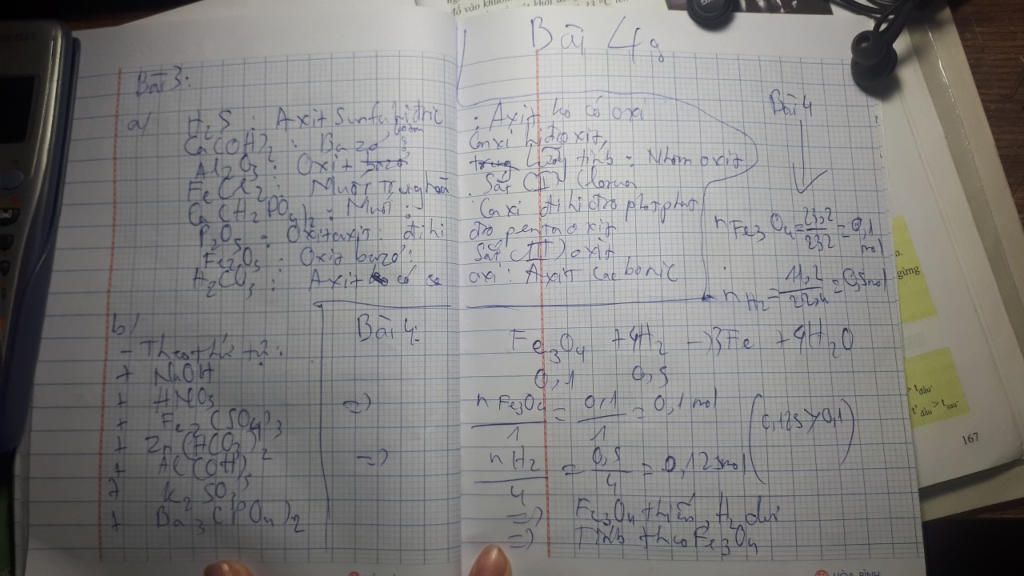 đổ vào khuôn
Bài 4g
Bài 3:
a/ H₂S : Axit Sunfuhiđric : Axit ko có oxi
Ca(OH)₂ : Bazơ : Canxi hiđroxit,
Al₂O₃ : Oxit lưỡng tính : Nhôm oxit
FeCl₂ : Muối trung hoà : Sắt (II) Clorua
Ca(H₂PO₄)₂ : Muối : Canxi đihiđro photphat
P₂O₅ : Oxit axit : đihiđro pentaoxit
Fe₂O₃ : Oxit bazơ : Sắt (III) oxit
H₂CO₃ : Axit có oxi : Axit Cacbonic
b/
- Theo thứ tự :
+ NaOH
+ HNO₃
+ Fe₂(SO₄)₃
+ Zn(HCO₃)₂
+ Al(OH)₃
+ K₂SO₃
+ Ba₃(PO₄)₂
Bài 4:
Bài 4
n Fe₃O₄ = 23,2/232 = 0,1 mol
n H₂ = 11,2/22,4 = 0,5 mol
Fe₃O₄ + 4H₂ -> 3Fe + 4H₂O
0,1 0,5
=> nFe₃O₄/1 = 0,1/1 = 0,1 mol
(0,125 > 0,1)
=> nH₂/4 = 0,5/4 = 0,125 mol
=> Fe₃O₄ hết, H₂ dư
=> Tính theo Fe₃O₄
167